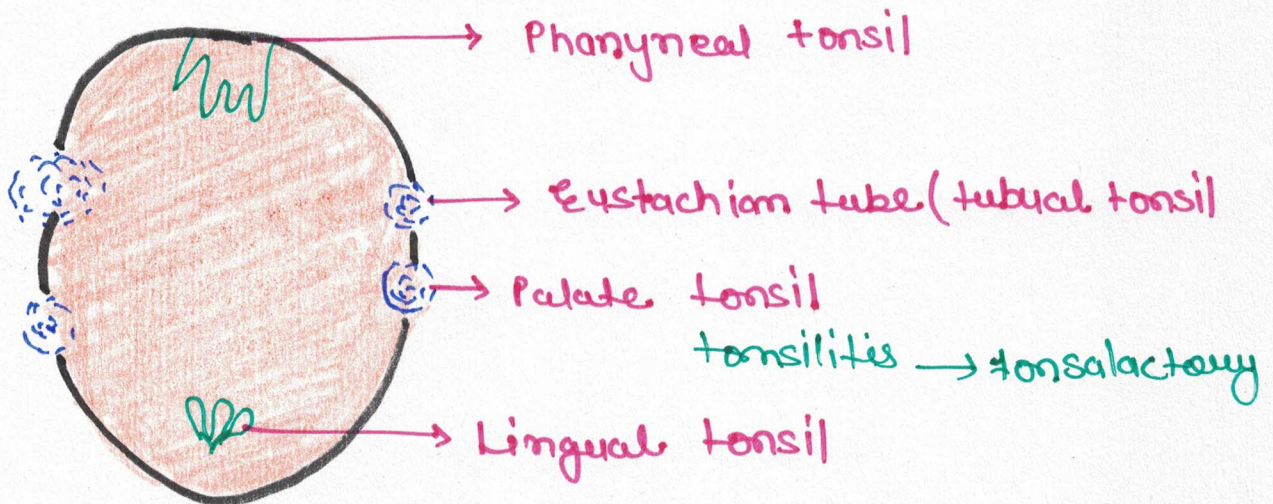 Phanyneal tonsil
Eustachian tube (tubual tonsil
Palate tonsil
tonsilitis → tonsalactouy
Lingual tonsil